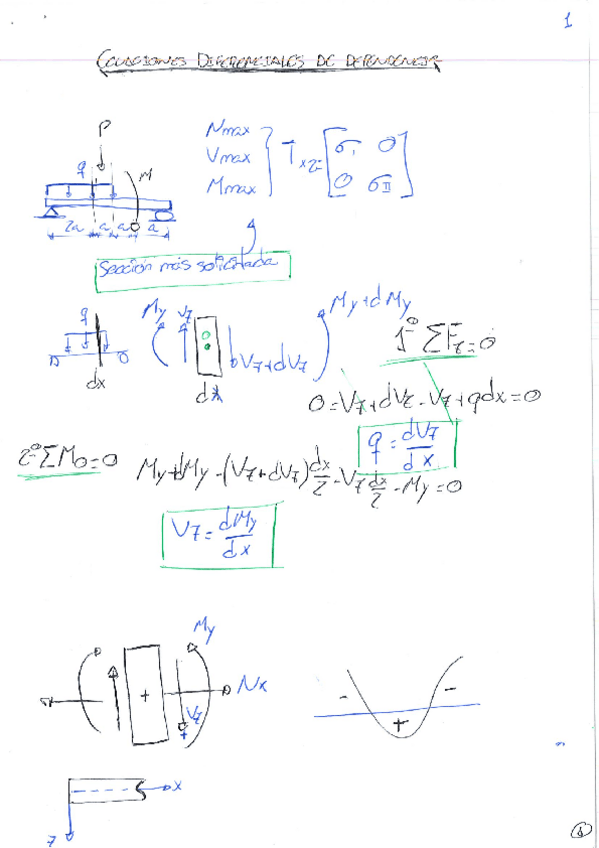 1
ECUACIONES DIFERENCIALES DE DEPENDENCIA
P
q
M
2a a a a
Nmax
Vmax
Mmax
Txz = [σI 0
0 σII]
Sección más solicitada
q
dx
My Vz
dx
Vz+dVz
My+dMy
1º ΣFz=0
0=Vz+dVz-Vz+qdx=0
q = dVz/dx
2º ΣMO=0
My+dMy-(Vz+dVz)dx/2-Vz dx/2-My=0
Vz = dMy/dx
My
+
Nx
Vz
+
- + -
x
z